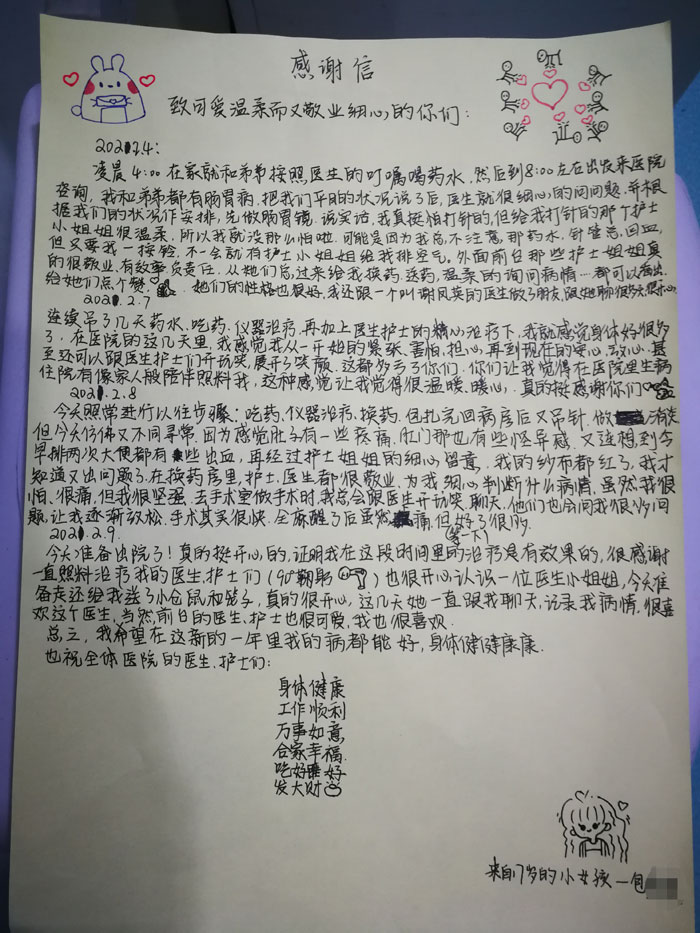 感谢信
致可爱温柔而又敬业细心的你们:
2021.2.4:
凌晨4:00在家就和弟弟按照医生的叮嘱喝药水,然后到8:00左右出发来医院
咨询,我和弟弟都有肠胃病.把我们平日的状况说了后,医生就很细心的问问题.并根
据我们的状况作安排,先做肠胃镜.说实话,我真挺怕打针的,但给我打针的那个护士
小姐姐很温柔.所以我就没那么怕啦.可能是因为我总不注意,那药水,针管总回血,
但只要我一按铃,不一会就有护士小姐姐给我排空气,外面前台那些护士姐姐真
的很敬业.有效率负责任.从她们总过来给我换药.送药,温柔的询问病情…都可以看出.
给她们点个赞 她们的性格也很好,我还跟一个叫谢凤英的医生做了朋友,跟她聊很多天,很开心
2021.2.7
连续吊了几天药水、吃药.仪器治疗.再加上医生护士的精心治疗下,我就感觉身体好很多
了.在医院的这几天里,我感觉我从一开始的紧张、害怕,担心,再到现在的安心,放心.甚
至还可以跟医生护士们开玩笑,展开了笑颜.这都多亏了你们.你们让我觉得在医院里生病
住院有像家人般陪伴照料我,这种感觉让我觉得很温暖、暖心.真的挺感谢你们
2021.2.8
今天照常进行以往步骤:吃药.仪器治疗.换药.包扎完回病房后又吊针.做
但今天仿佛又不同寻常.因为感觉肚子有一些疼痛,肛门那也有些怪异感.又连想到今
早排两次大便都有些出血,再经过护士姐姐的细心留意.我的纱布都红了,我才
知道又出问题了.在换药房里,护士.医生都很敬业.为我细心判断什么病情.虽然我很
怕、很痛,但我很坚强.去手术室做手术时,我总会跟医生开玩笑.聊天,他们也会问我很多问
题,让我逐渐放松.手术其实很快.全麻醒了后虽然痛,但好了很多.
2021.2.9
(等一下)
今天准备出院了!真的挺开心的,证明我在这段时间里的治疗是有效果的,很感谢
一直照料治疗我的医生.护士们(90°鞠躬)也很开心认识一位医生小姐姐,今天准
备走还给我送了小仓鼠和笼子,真的很开心,这几天她一直跟我聊天,记录我病情,很喜
欢这个医生.当然前台的医生.护士也很可爱.我也很喜欢.
总之,我希望在这新的一年里我的病都能好,身体健健康康.
也祝全体医院的医生.护士们:
身体健康
工作顺利
万事如意,
合家幸福.
吃好睡好
发大财
来自17岁的小女孩—包